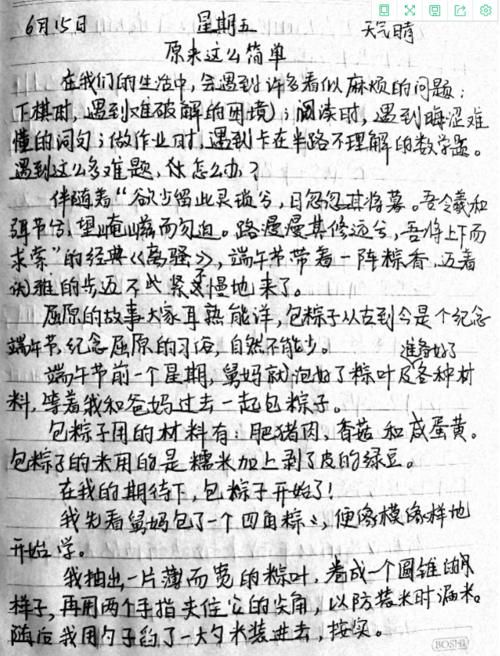 6月15日 星期五 天气晴
原来这么简单
在我们的生活中,会遇到许多看似麻烦的问题:
下棋时,遇到难破解的困境;阅读时,遇到晦涩难
懂的词句;做作业时,遇到卡在半路不理解的数学题。
遇到这么多难题,你怎么办?
伴随着“欲少留此灵琐兮,日忽忽其将暮。吾令羲和
弭节兮,望崦嵫而勿迫。路漫漫其修远兮,吾将上下而
求索”的经典《离骚》,端午节带着一阵粽香,迈着
优雅的步迈不紧不慢地来了。
屈原的故事大家耳熟能详,包粽子从古到今是个纪念
端午节,纪念屈原的习俗,自然不能少。
准备好了
端午节前一个星期,舅妈就泡好了粽叶及各种材
料,等着我和爸妈过去一起包粽子。
包粽子用的材料有:肥猪肉,香菇和咸蛋黄。
包粽子的米用的是糯米加上剥了皮的绿豆。
在我的期待下,包粽子开始了!
我先看舅妈包了一个四角粽子,便像模像样地
开始学。
我抽出一片薄而宽的粽叶,卷成一个圆锥的
样子,再用两个手指夹住它的尖角,以防装米时漏米。
随后我用勺子舀了一大勺米装进去,按实。
BOSHI